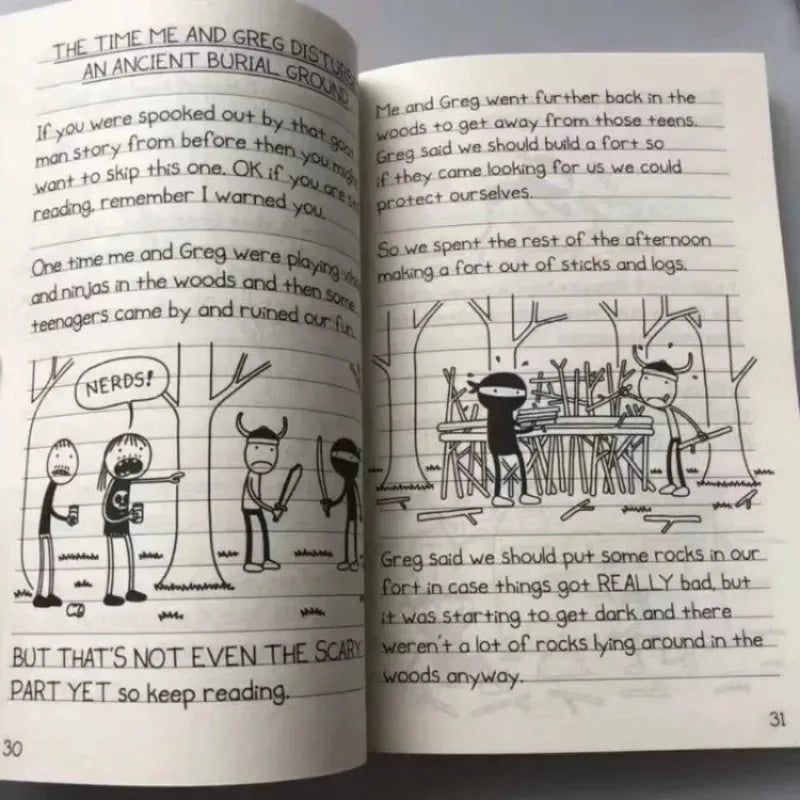 THE TIME ME AND GREG
AN ANCIENT BURIAL GROUND
If you were spooked out by that goat
man story from before then you might
want to skip this one. OK if you are
reading, remember I warned you.
One time me and Greg were playing
and ninjas in the woods and then some
teenagers came by and ruined our fun.
NERDS!
BUT THAT'S NOT EVEN THE SCARY
PART YET so keep reading.
30
Me and Greg went further back in the
woods to get away from those teens.
Greg said we should build a fort so
if they came looking for us we could
protect ourselves.
So we spent the rest of the afternoon
making a fort out of sticks and logs.
Greg said we should put some rocks in our
fort in case things got REALLY bad, but
it was starting to get dark and there
weren't a lot of rocks lying around in the
woods anyway.
31